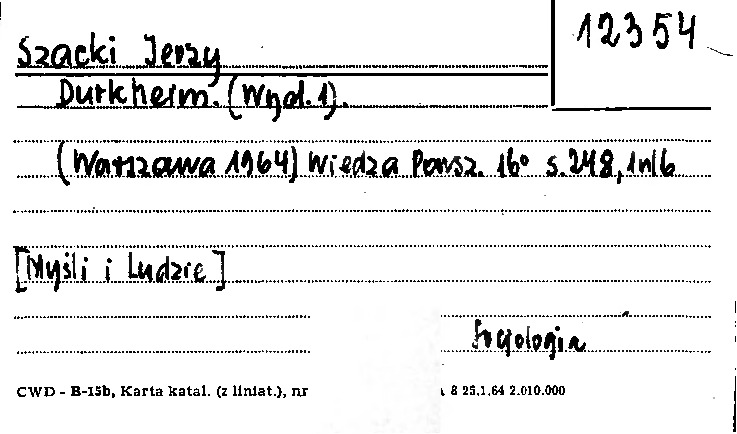 12354
Szacki Jerzy
Durkheim. (Wyd. 1).
(Warszawa 1964) Wiedza Powsz. 16° s. 248, 1nlb
[Myśli i Ludzie]
Socjologia
CWD - B-15b, Karta katal. (z liniat.), nr 8 25.1.64 2.010.000